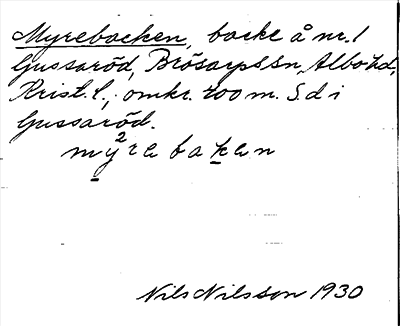 Myrebacken, backe å nr. 1
Gussaröd, Brösarps sn, Albo hd,
Krist. l., omkr. 200 m. S. d i
Gussaröd.
mỳ²re bakan
Nils Nilsson 1930